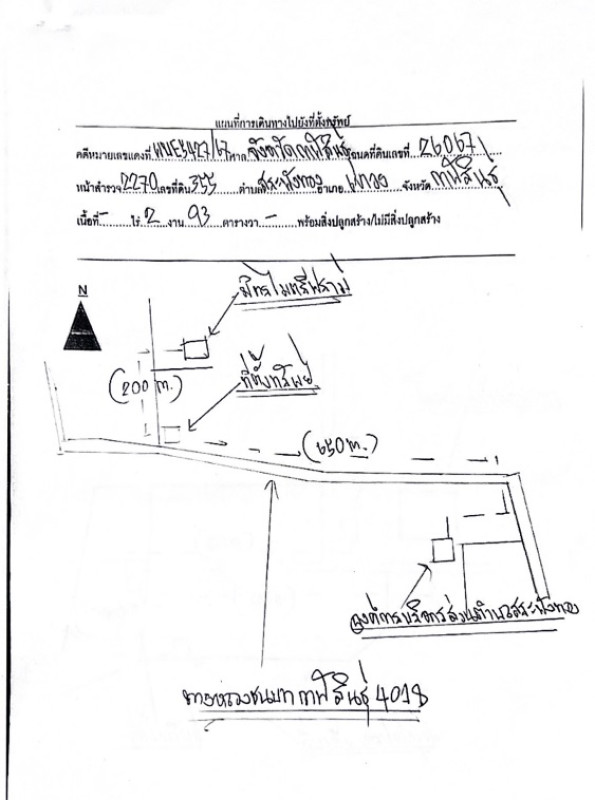 แผนที่การเดินทางไปยังที่ตั้งทรัพย์
คดีหมายเลขแดงที่ ผบE3427/67 ศาล จังหวัดกาฬสินธุ์ โฉนดที่ดินเลขที่ 26067
หน้าสำรวจ 2270 เลขที่ดิน 355 ตำบล สระพังทอง อำเภอ เขาวง จังหวัด กาฬสินธุ์
เนื้อที่ - ไร่ 2 งาน 93 ตารางวา - พร้อมสิ่งปลูกสร้าง/ไม่มีสิ่งปลูกสร้าง
N
มิตรไมตรีฟาร์ม
(200 m.)
ที่ตั้งทรัพย์
(650 m.)
องค์การบริหารส่วนตำบลสระพังทอง
ทางหลวงชนบท กาฬสินธุ์ 4018